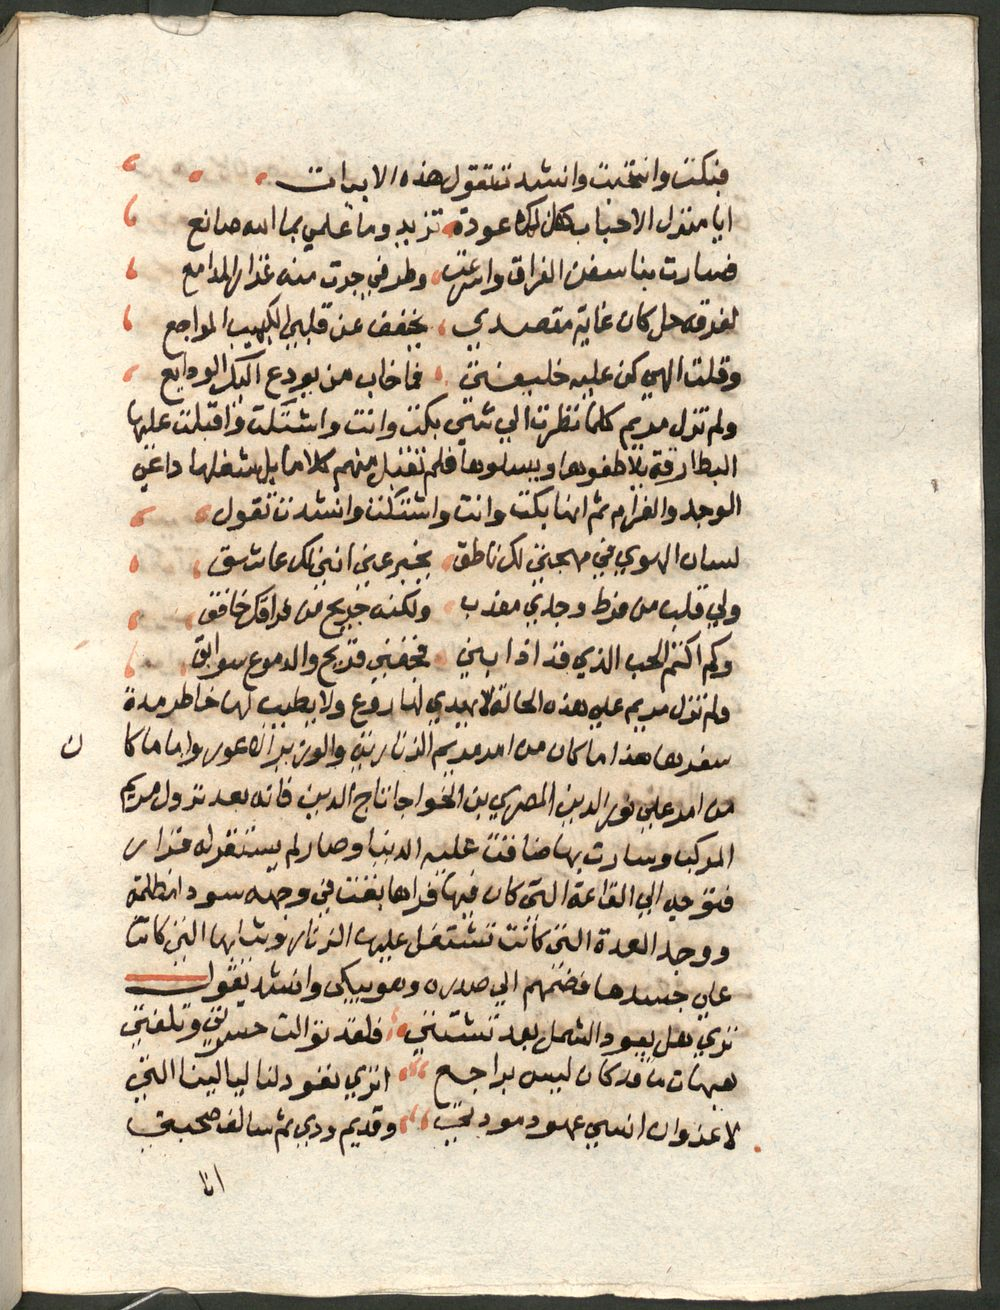 فبكت وانتخبت وانشدت تقول هذه الابيات
ايا منزل الاحباب هل لك عودة تزيد وما علمي بما الله صانع
فسارت بنا سفن الفراق واسرعت وطرفي جرت منه غزار المدامع
لفرقه خل كان غاية مقصدي يخفف عن قلبي الكييب المواجع
وقلت الهي كن عليه خليفتي فما خاب من يودع اليك الودايع
ولم تزل مريم كلما نظرت الي شي بكت وانت واشتكت واقبلت عليها
البطارقة يلاطفوها ويسلوها فلم تقبل منهم كلاما بل شغلها داعي
الوجد والغرام ثم انها بكت وانت واشتكت وانشدت تقول
لسان الهوي في مهجتي لك ناطق يخبر عني انني لك عاشق
ولي قلب من فرط وجدي معذب ولكنه جريح من فراقك خافق
وكم اكتم الحب الذي قد اذابني فجفني قريح والدموع سوابق
ولم تزل مريم علي هذه الحالة لا يهدي لها روع ولا يطيب لها خاطر مدة
سفرها هذا ما كان من امر مريم الزنارية والوزير الاعور واما ما كا ن
من امر علي نور الدين المصري بن الخواجا تاج الدين فانه بعد نزول مريم
المركب وسارت بها ضاقت عليه الدنيا وصار لم يستقر له قرار
فتوجه الي القاعة التي كان فيها فراها بقت في وجهه سودا مظلمة
ووجد العدة التي كانت تشتغل عليها الزنار وثيابها التي كانت
علي جسدها فضمهم الي صدره وهو يبكي وانشد يقول
تري هل يعود الشمل بعد تشتتي فلقد توالت حسرتي وتلفتي
هيهات ما قد كان ليس براجع اتري تعود لنا ليالينا التي
لا غرو ان انسي عهود مودتي وقديم ودي ثم سالف صحبتي
انا